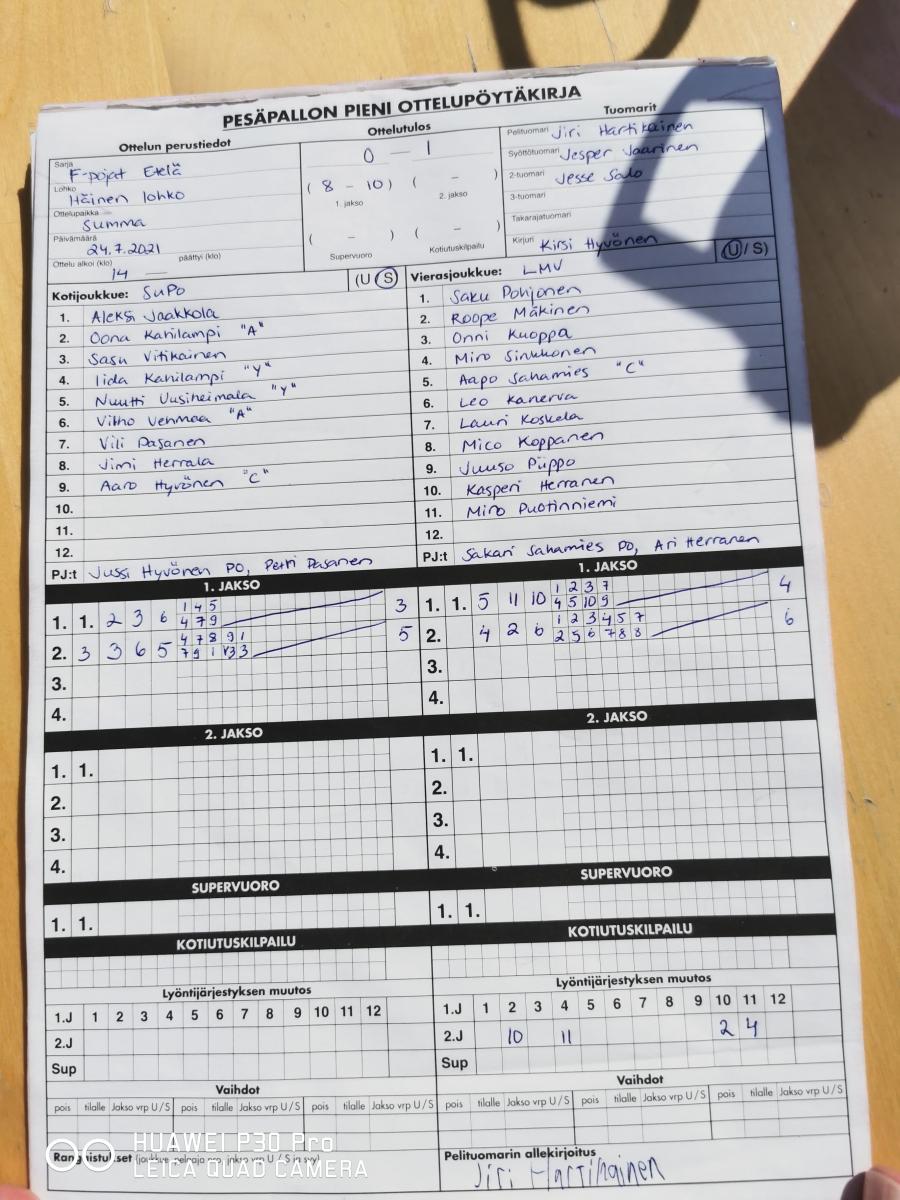 PESÄPALLON PIENI OTTELUPÖYTÄKIRJA
Ottelun perustiedot
Sarja
F-pojat Etelä
Lohko
Häinen lohko
Ottelupaikka
Summa
Päivämäärä
24.7.2021
Ottelu alkoi (klo) päättyi (klo)
14 —
Ottelutulos
0 – 1
( 8 – 10 ) ( – )
1. jakso 2. jakso
( – ) ( – )
Supervuoro Kotiutuskilpailu
Tuomarit
Pelituomari Jiri Hartikainen
Syöttötuomari Jesper Jaarinen
2-tuomari Jesse Salo
3-tuomari
Takarajatuomari
Kirjuri Kirsi Hyvönen
Kotijoukkue: SuPo (U / S)
1. Aleksi Jaakkola
2. Oona Kahilampi "A"
3. Sasu Vitikainen
4. Iida Kahilampi "Y"
5. Nuutti Uusiheimala "Y"
6. Vilho Vehmaa "A"
7. Vili Pasanen
8. Jimi Herrala
9. Aaro Hyvönen "C"
10.
11.
12.
PJ:t Jussi Hyvönen PO, Petri Pasanen
Vierasjoukkue: LMV (U / S)
1. Saku Pohjonen
2. Roope Mäkinen
3. Onni Kuoppa
4. Miro Sinkkonen
5. Aapo Sahamies "C"
6. Leo Kanerva
7. Lauri Koskela
8. Mico Koppanen
9. Juuso Piippo
10. Kasperi Herranen
11. Miro Puotinniemi
12.
PJ:t Sakari Sahamies PO, Ari Herranen
1. JAKSO
1. 1. 2 3 6 1 4 5 3
4 7 9
2. 3 3 6 5 4 7 8 9 1 5
7 9 1 3 3
3.
4.
1. JAKSO
1. 1. 5 11 10 1 2 3 7 4
4 5 10 9
2. 4 2 6 1 2 3 4 5 7 6
2 5 6 7 8 8
3.
4.
2. JAKSO
1. 1.
2.
3.
4.
2. JAKSO
1. 1.
2.
3.
4.
SUPERVUORO
1. 1.
SUPERVUORO
1. 1.
KOTIUTUSKILPAILU
KOTIUTUSKILPAILU
Lyöntijärjestyksen muutos
1.J 1 2 3 4 5 6 7 8 9 10 11 12
2.J
Sup
Lyöntijärjestyksen muutos
1.J 1 2 3 4 5 6 7 8 9 10 11 12
2.J 10 11 2 4
Sup
Vaihdot
pois tilalle Jakso vrp U / S pois tilalle Jakso vrp U / S pois tilalle Jakso vrp U / S
Vaihdot
pois tilalle Jakso vrp U / S pois tilalle Jakso vrp U / S pois tilalle Jakso vrp U / S
Rangaistukset (joukkue, pelaaja nro, jakso vrp U / S
Pelituomarin allekirjoitus
Jiri Hartikainen
HUAWEI P30 Pro
LEICA QUAD CAMERA